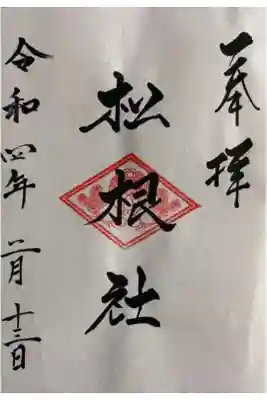 奉拝
松根社
令和四年二月十三日